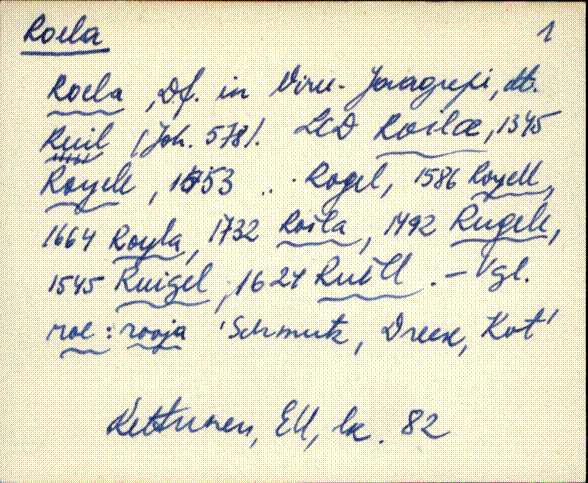 Roela 1
Roela, Df. in Viru-Jaagupi, dt.
Ruil (Joh. 578). LCD Roilæ, 1345
Royele, 1453 .. Rogel, 1586 Royell,
1664 Royla, 1732 Roila, 1492 Rugele,
1545 Ruigel, 1624 Ruill. – Vgl.
roe : rooja 'Schmutz, Dreck, Kot'
Kettunen, EM, lk. 82